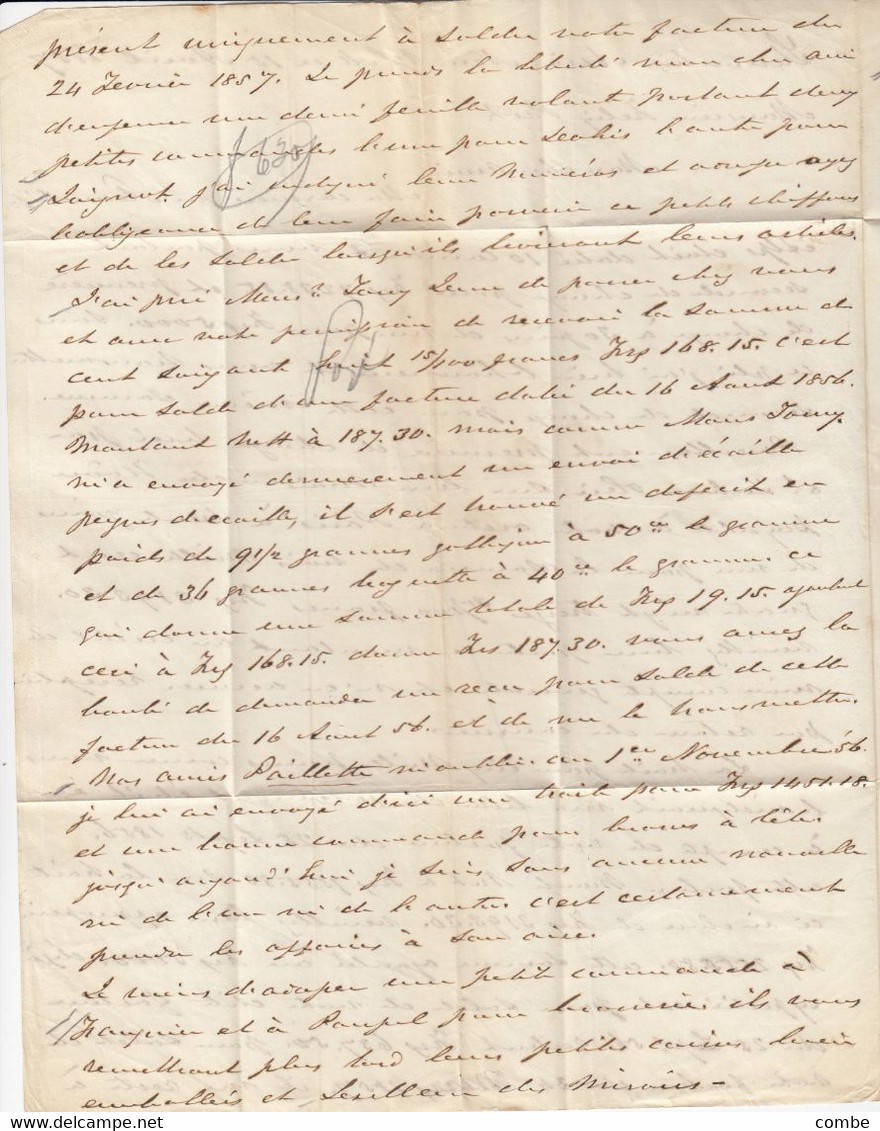 présent uniquement à solder votre facture du
24 Fevrier 1857. Je prends la liberté mon cher ami
une demi feuille volante portant deux
petites commandes l'une pour l'autre pour
620
j'ai indiqué leur Numéros et vous ayez
l'obligeance de leur faire parvenir ce petits chiffons
et de les solder lorsqu'ils livreront leurs articles.
J'ai prié Mons? Jamy de passer chez vous
et avec votre permission de recevoir la somme de
cent soixante huit 15/100 francs Frs 168.15. c'est
pour solde d'une facture datée du 16 Aout 1856.
Montant nett à 187.30. mais comme Mons Jamy
m'a envoyé dernierement un envoi d'écaille
peignes d'ecaille, il s'est trouvé un deficit en
poids de 9 1/2 grammes à 50 ce le gramme
et de 36 grammes baguette à 40 ce le gramme ce
qui donne une somme totale de Frs 19.15. ajoutant
ceci à Frs 168.15. donne Frs 187.30. vous aurez la
bonté de demander un recu pour solde de cette
facture du 16 Aout 56. et de me le transmettre.
Nos amis Paillette m'oublie. au 1er Novembre 56.
je lui ai envoyé d'ici une traite pour Frs 1451.18.
et une bonne commande pour brosses à tête.
jusqu'aujourd'hui je suis sans aucune nouvelle
ni de l'une ni de l'autre c'est certainement
prendre les affaires à son aise.
Je viens d'adresser une petite commande à
et à Poupel pour brosserie ils vous
remettront plus tard leurs petites caisses bien
emballés et des Miroirs -
combe